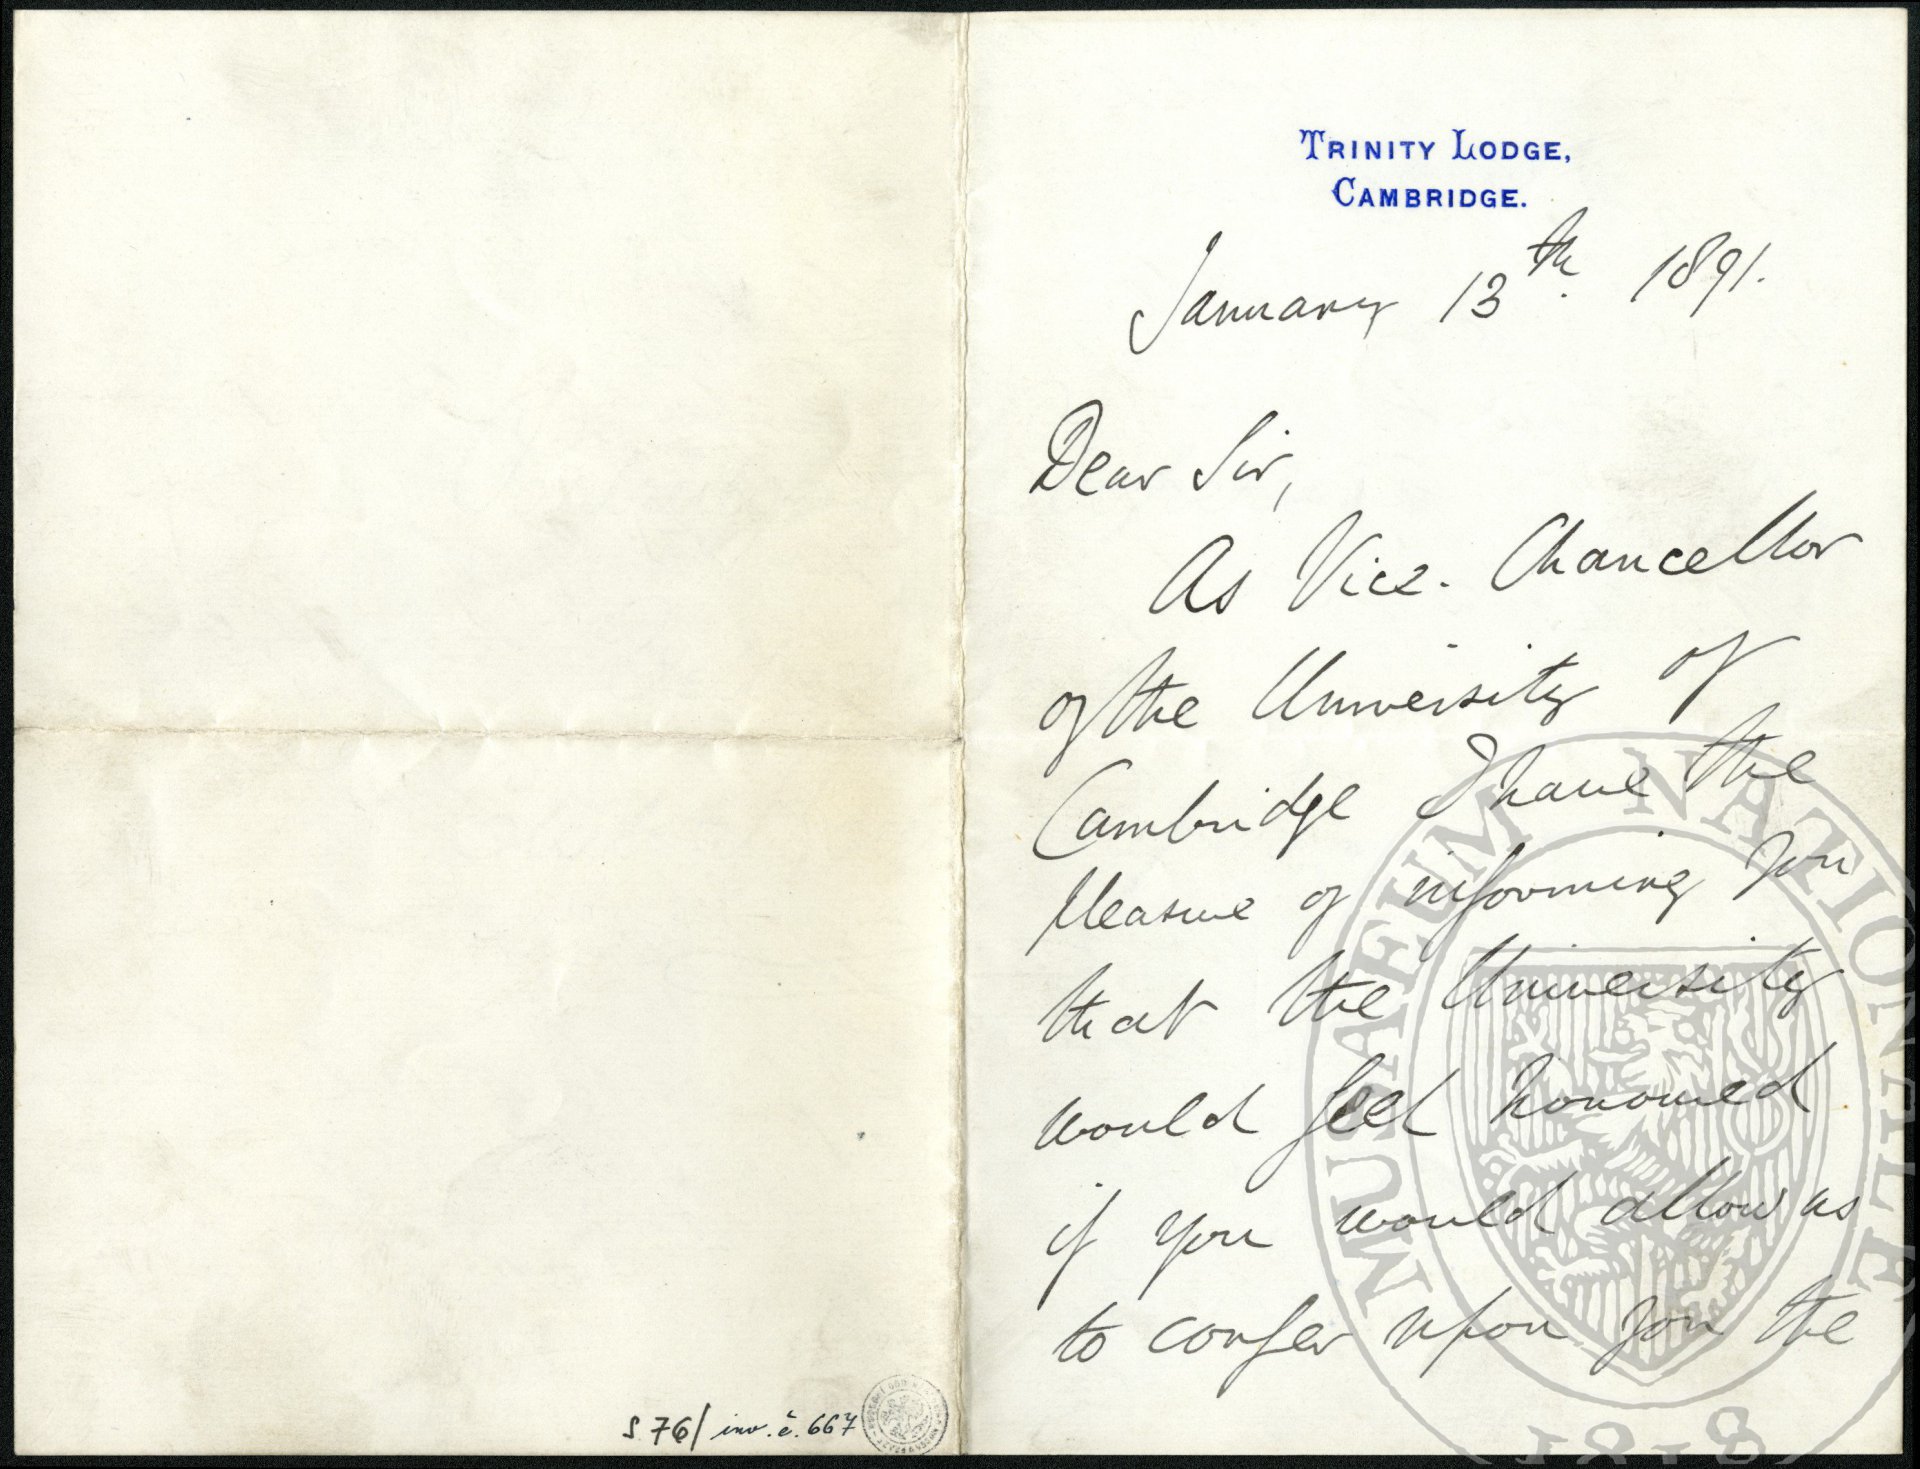 TRINITY LODGE,
CAMBRIDGE.
January 13th. 1891.
Dear Sir,
As Vice-Chancellor
of the University of
Cambridge I have the
pleasure of informing you
that the University
would feel honoured
if you would allow us
to confer upon you the
S 76/ inv. č. 667
MUSAEUM NATIONALE
1818